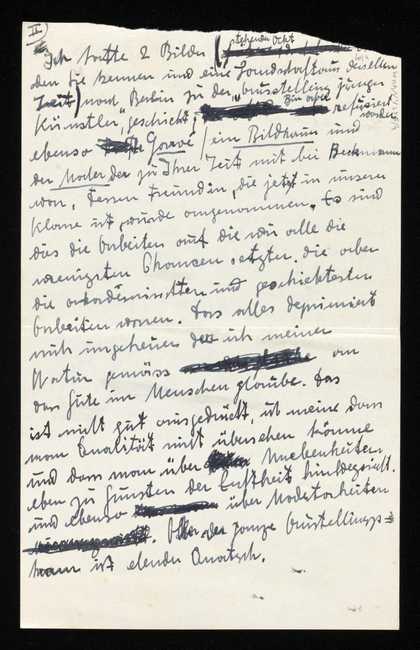 II
stehender Akt
Ich hatte 2 Bilder (
den Sie kennen und eine Landschaft aus derselben
Zeit) nach Berlin zu der "Ausstellung junger
Künstler" geschickt; Bin aber refüsiert
worden
ebenso Gorve / ein Bildhauer und
der Maler der zu Ihrer Zeit mit bei Beckmann
war, dessen Freundin, die jetzt in unserer
Klasse ist, wurde angenommen. Es sind
dies die Arbeiten auf die wir alle die
wenigsten Chancen setzten, die aber
die akademischsten und geschicktesten
Arbeiten waren. Das alles deprimiert
mich ungeheuer da ich meiner
Natur gemäss an
das Gute im Menschen glaube. Das
ist nicht gut ausgedrückt, ich meine dass
man Qualität nicht übersehen könne
und dass man über Unebenheiten
eben zu Gunsten der Echtheit hinwegsieht.
und ebenso über Modetorheiten
. Aber der ganze Ausstellungs=
kram ist elender Quatsch.